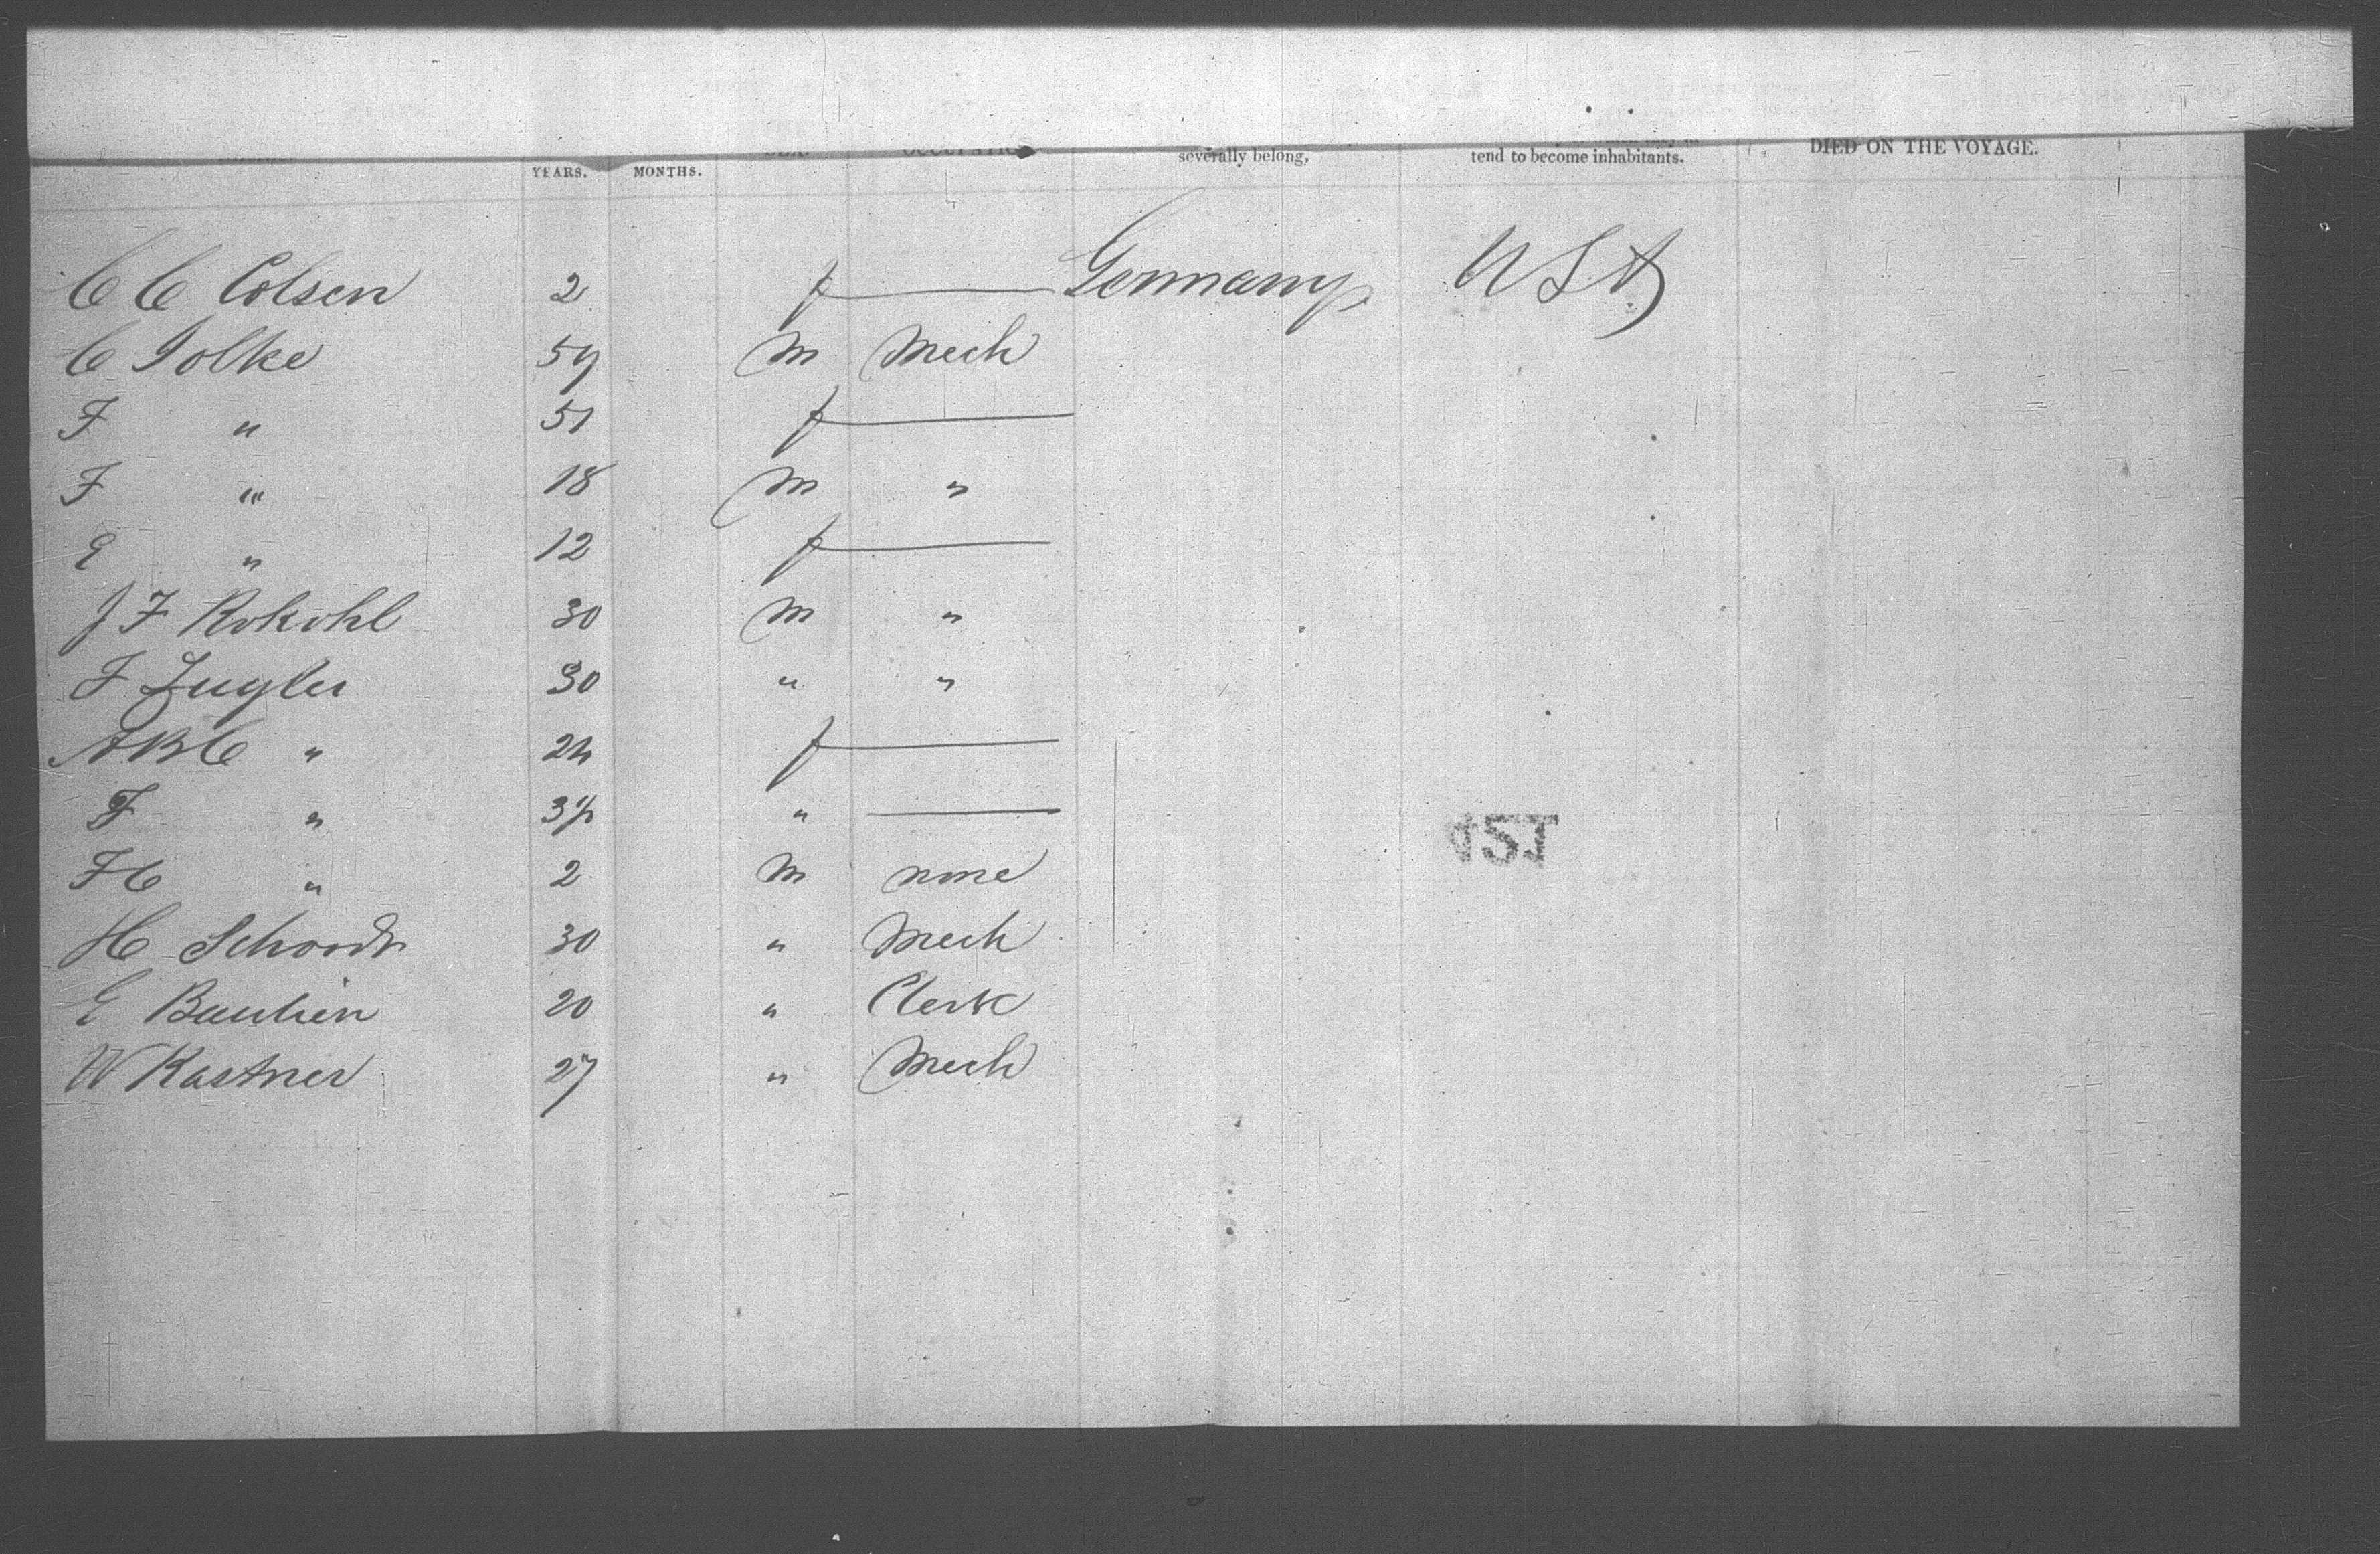 YEARS. MONTHS. SEX. OCCUPATION severally belong, tend to become inhabitants. DIED ON THE VOYAGE.
C C Colsen 2 f Germany USA
C Jolke 59 m Mech
F " 51 f
F " 18 m "
E " 12 f
J F Rokohl 30 m "
F Zugler 30 " "
A B C " 24 f
F " "
F C " 2 m none
H Schoodt 30 " Mech
E Baulien 20 " Clerk
W Kastner 27 " Mech